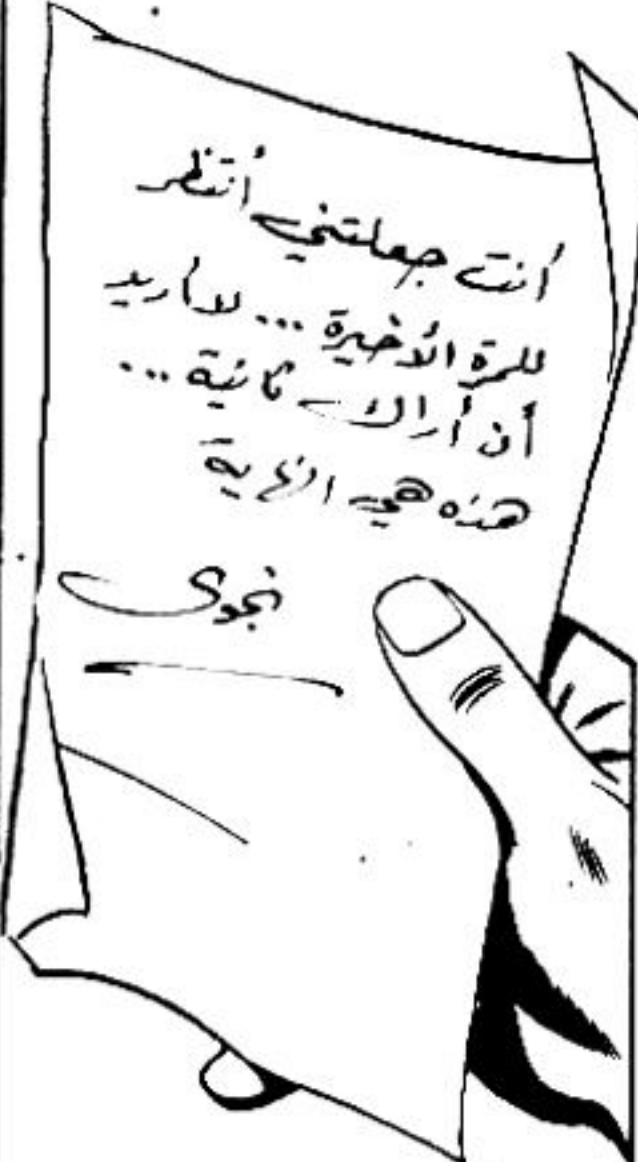 أنت جعلتني أنتظر
للمرة الأخيرة... لا أريد
أن أراك ثانية...
هذه هي النهاية
نجوى